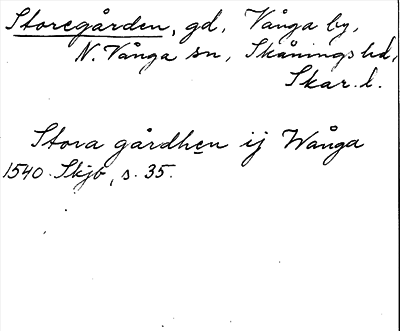 Storegården, gd, Vånga by,
N. Vånga sn, Skånings hd,
Skar. l.
Stora gårdhen ij Wånga
1540 Skjb, s. 35.